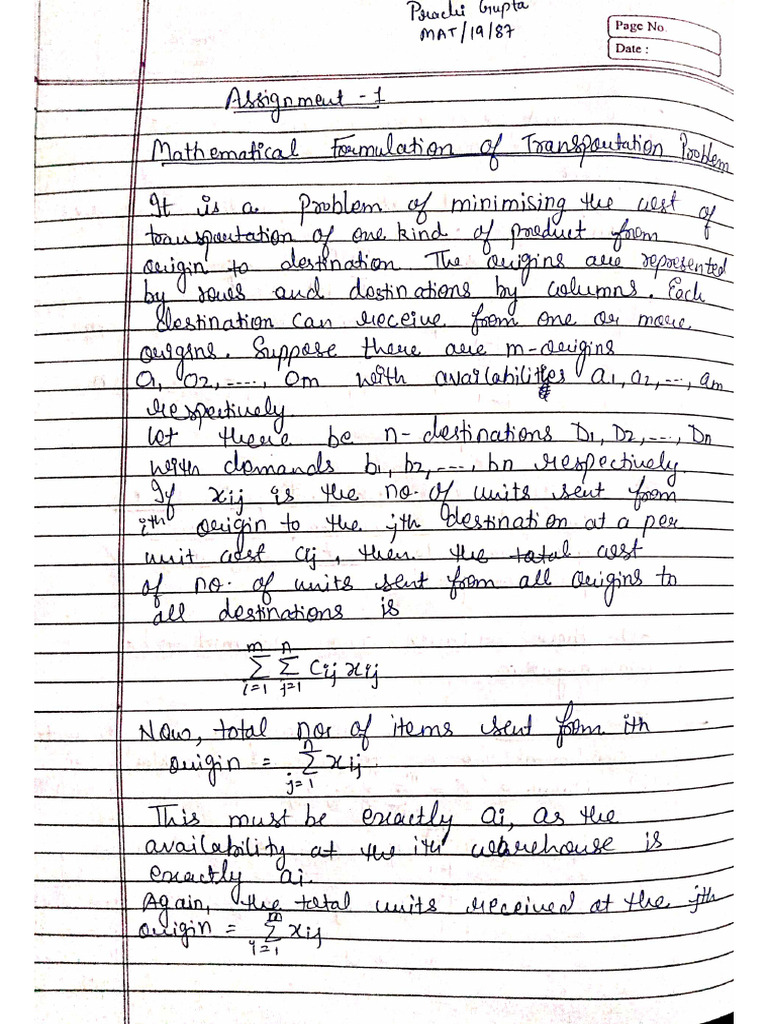 Prachi Gupta
MAT/19/87
Page No.
Date :
Assignment - 1
Mathematical Formulation of Transportation Problem
It is a problem of minimising the cost of
transportation of one kind of product from
origin to destination. The origins are represented
by rows and destinations by columns. Each
destination can receive from one or more
origins. Suppose there are m-origins
O1, O2, ....., Om with availabilities a1, a2, ..., am
respectively.
Let there be n-destinations D1, D2, ...., Dn
with demands b1, b2, ...., bn respectively.
If xij is the no. of units sent from
ith origin to the jth destination at a per
unit cost cij, then the total cost
of no. of units sent from all origins to
all destinations is
m n
∑ ∑ Cij xij
i=1 j=1
Now, total no. of items sent from ith
origin = n∑j=1 xij
This must be exactly ai, as the
availability at the ith warehouse is
exactly ai.
Again, the total units received at the jth
origin = m∑i=1 xij